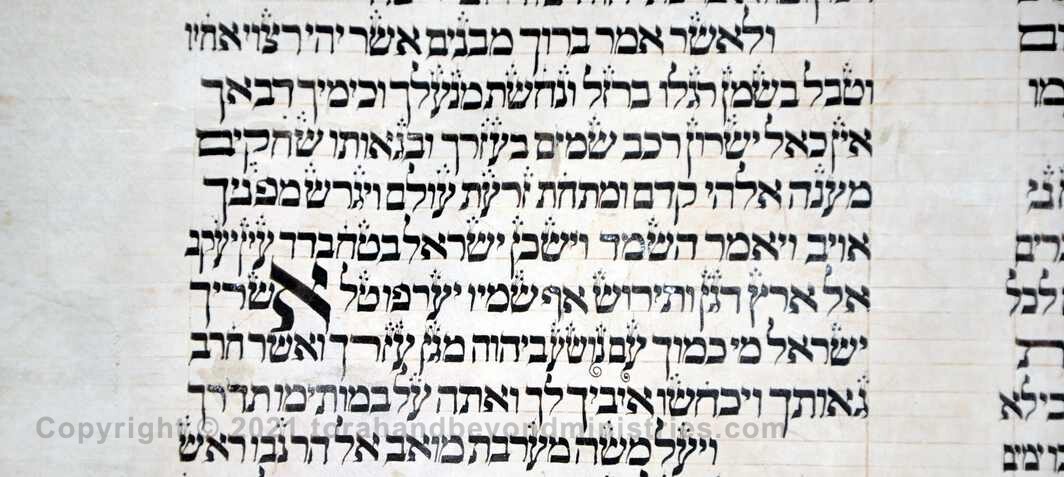 ולאשר אמר ברוך מבנים אשר יהי רצוי אחיו
וטבל בשמן רגלו ברזל ונחשת מנעלך וכימיך דבאך
אין כאל ישרון רכב שמים בעזרך ובגאותו שחקים
מענה אלהי קדם ומתחת זרעת עולם ויגרש מפניך
אויב ויאמר השמד וישכן ישראל בטח בדד עין יעקב
אל ארץ דגן ותירוש אף שמיו יערפו טל אשריך
ישראל מי כמוך עם נושע ביהוה מגן עזרך ואשר חרב
גאותך ויכחשו איביך לך ואתה על במותימו תדרך
ויעל משה מערבת מואב אל הר נבו ראש
Copyright © 2021 torahandbeyondministries.com